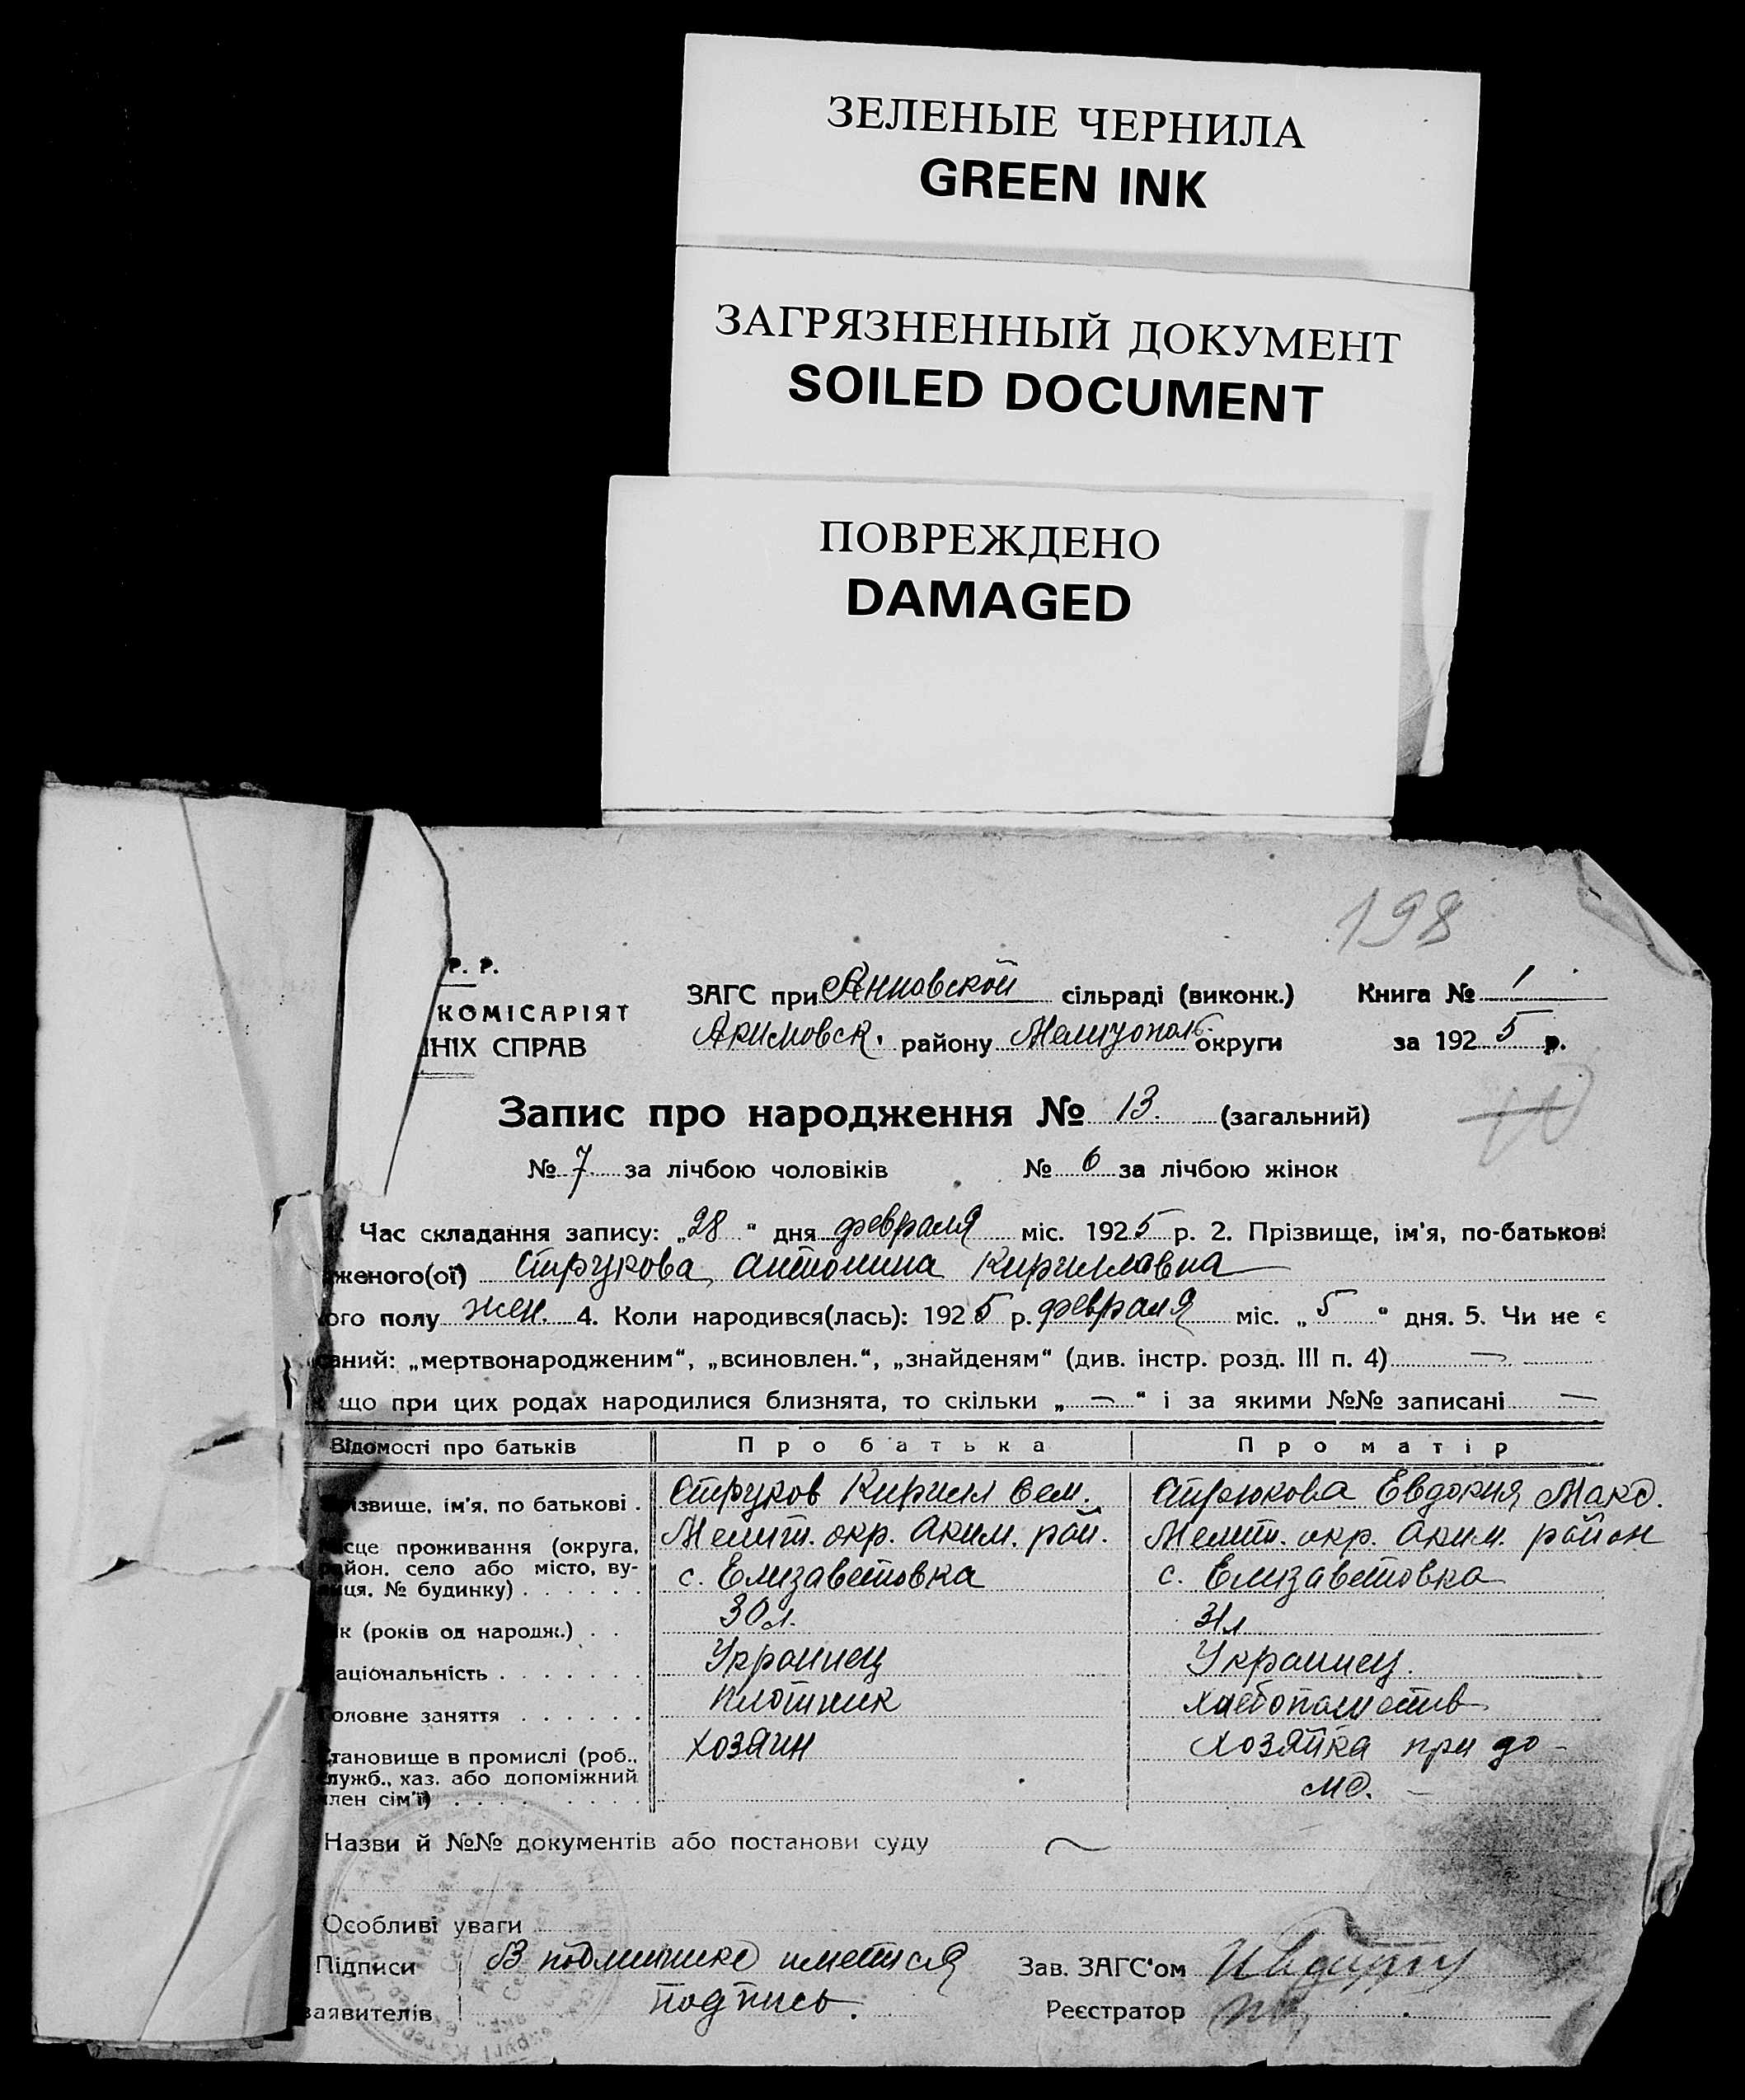 ЗЕЛЕНЫЕ ЧЕРНИЛА
GREEN INK
ЗАГРЯЗНЕННЫЙ ДОКУМЕНТ
SOILED DOCUMENT
ПОВРЕЖДЕНО
DAMAGED
198
Р. Р.
КОМІСАРІЯТ
НІХ СПРАВ
ЗАГС при Анновской сільраді (виконк.) Книга № 1
Акимовск. району Мелитополь. округи за 1925 р.
Запис про народження № 13. (загальний)
№ 7 за лічбою чоловіків № 6 за лічбою жінок
Час складання запису: „28“ дня февраля міс. 1925 р. 2. Прізвище, ім'я, по-батькові
женого(ої) Струкова Антонина Кирилловна
ого полу жен. 4. Коли народився(лась): 1925 р. февраля міс. „5“ дня. 5. Чи не є
саний: „мертвонародженим“, „всиновлен.“, „знайденям“ (див. інстр. розд. III п. 4) —
що при цих родах народилися близнята, то скільки „—“ і за якими №№ записані —
Відомості про батьків Про батька Про матір
різвище, ім'я, по батькові . Струков Кирилл Сем. Стрюкова Евдокия Макс.
ісце проживання (округа, Мелит. окр. Аким. рай. Мелит. окр. Аким. район
район, село або місто, ву-
лиця, № будинку) . . . . . . с. Елизаветовка с. Елизаветовка
ік (років од народж.) . . 30 л. 31 л
аціональність . . . . . . . Украинец Украинец.
оловне заняття . . . . . . плотник хлебопашество
тановище в промислі (роб., хозяин хозяйка при до-
лужб., хаз. або допоміжний
член сім'ї) . . . . . . . . ме. —
Назви й №№ документів або постанови суду ~
Особливі уваги
Підписи В подлиннике имеется Зав. ЗАГС'ом
заявителів подпись. Реєстратор